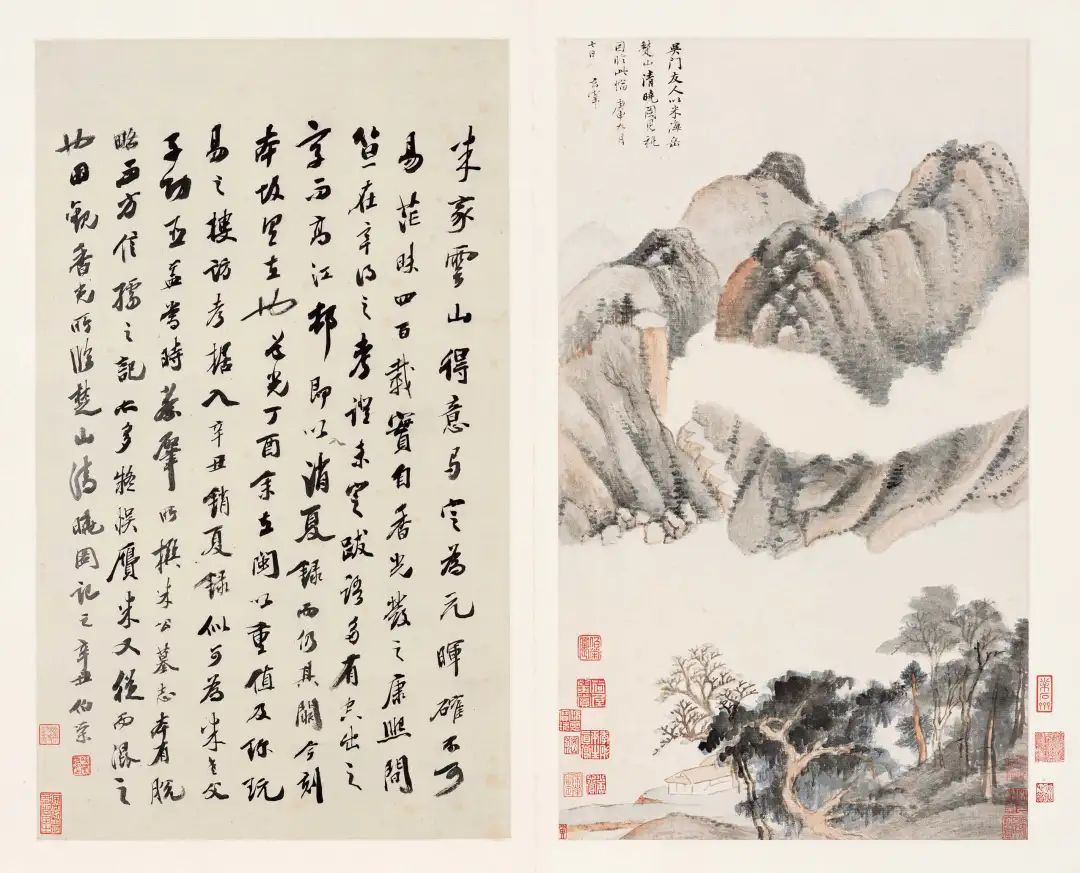 吳門友人以米海岳
楚山清曉圖見
因臨此幅庚申九月
七日 玄宰
米家雲山得意馬定為元暉確不可
易茫昧四百載實自香光發之康熙間
笪在辛得之考證未定跋語多有空出之
字而高江邨即以消夏錄而仍其闕今刻
本故里在也道光丁酉余在閩以重值及珎玩
易之摟訪考據入辛丑銷夏錄似可為米老父
子功臣蓋當時蔡肇所撰米公墓志本有脫
略而方信孺之記亦多疑悞贋米又從而溷之
也因觀香光所臨楚山清曉圖記之辛丑伯榮